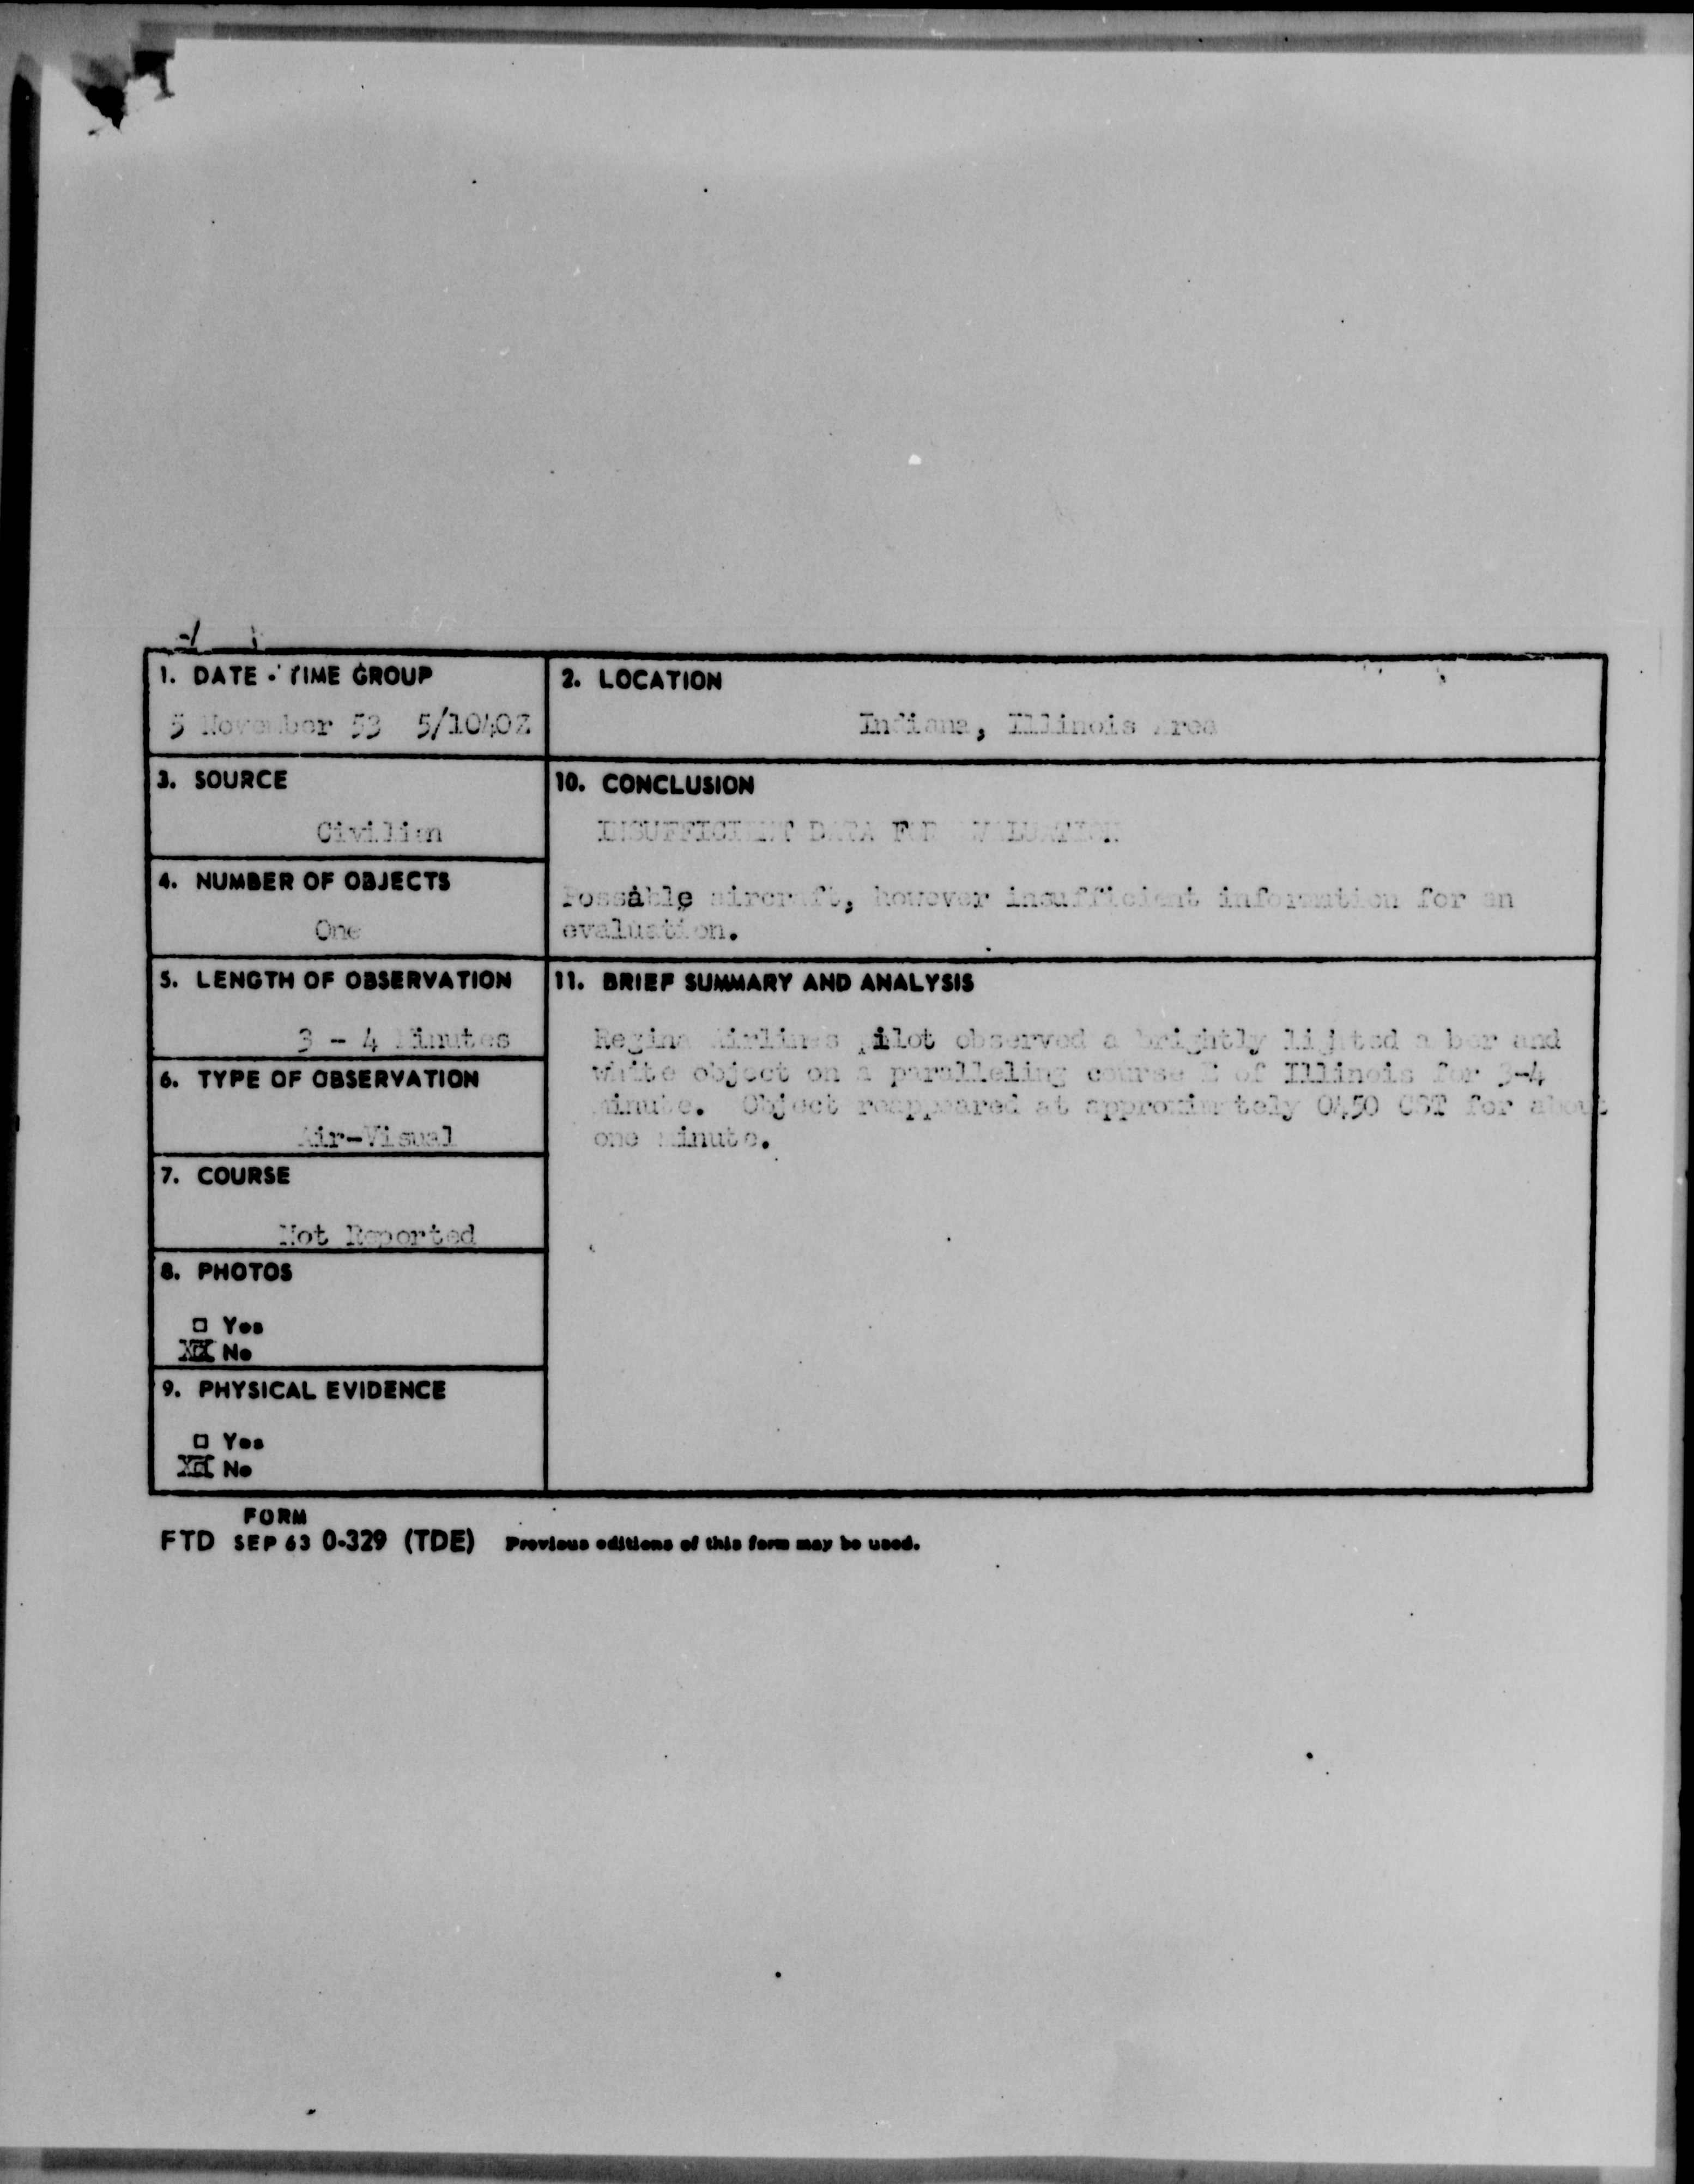 1. DATE - TIME GROUP
5 November 53 5/1040Z
2. LOCATION
Indiana, Illinois Area
3. SOURCE
Civilian
10. CONCLUSION
INSUFFICIENT DATA FOR EVALUATION
Possible aircraft, however insufficient information for an
evaluation.
4. NUMBER OF OBJECTS
One
5. LENGTH OF OBSERVATION
3 - 4 Minutes
11. BRIEF SUMMARY AND ANALYSIS
Regina Airlines pilot observed a brightly lighted amber and
white object on a paralleling course of Illinois for 3-4
minute. Object reappeared at approximately 0450 CST for about
one minute.
6. TYPE OF OBSERVATION
Air-Visual
7. COURSE
Not Reported
8. PHOTOS
□ Yes
XX No
9. PHYSICAL EVIDENCE
□ Yes
XX No
FORM
FTD SEP 63 0-329 (TDE) Previous editions of this form may be used.